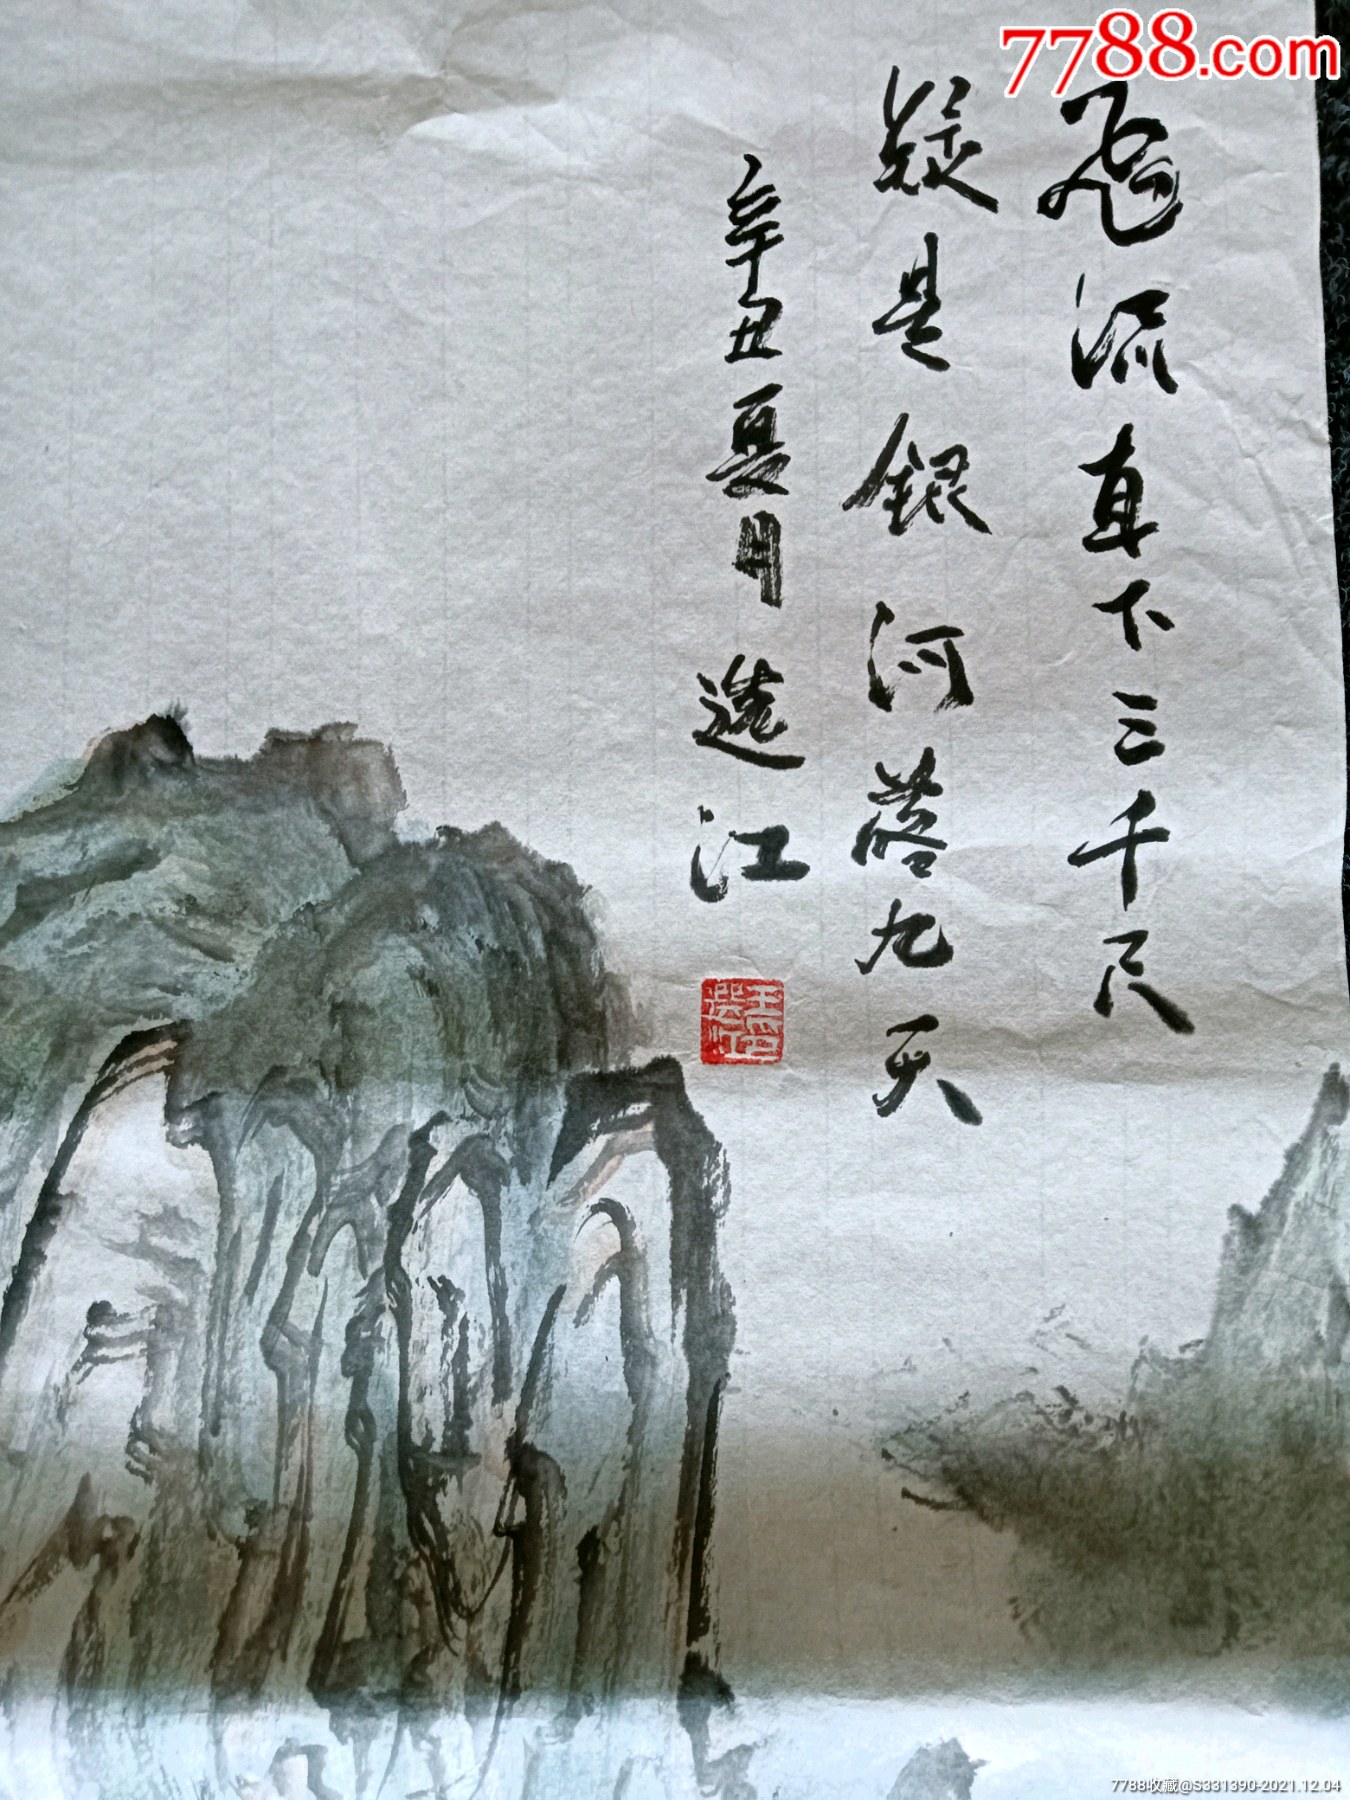 7788.com
飛流直下三千尺
疑是銀河落九天
辛丑夏月选江
7788收藏@S331390-2021.12.04